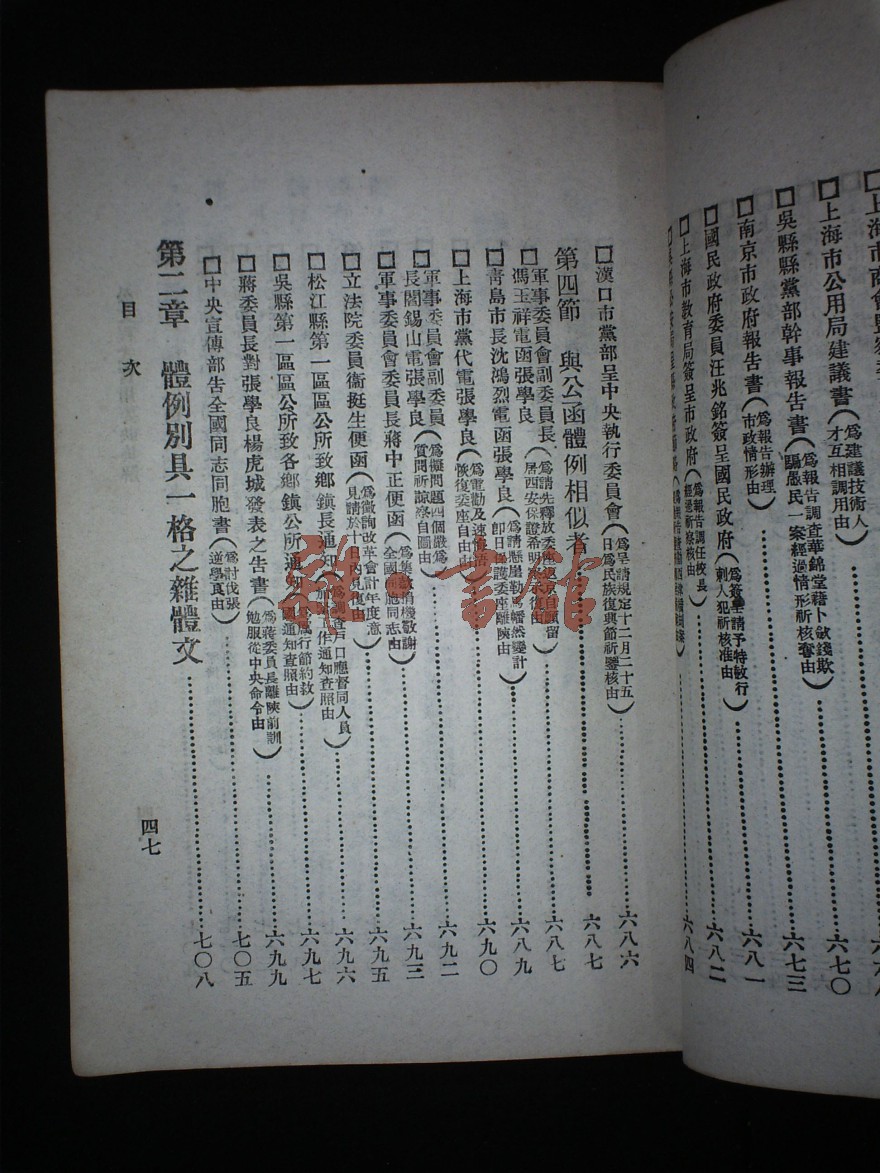 上海市公用局建議書（爲建議技術人才互相調用由）……六七〇
吳縣縣黨部幹事報告書（爲報告調查華錦堂藉卜斂錢欺騙愚民一案經過情形祈核奪由）……六七三
南京市政府報告書（爲報告辦理市政情形由）……六八一
國民政府委員汪兆銘簽呈國民政府（爲簽呈請予特赦行刺人犯祈核准由）……六八二
上海市教育局簽呈市政府（爲報告調任校長經過祈察核由）……六八四
漢口市黨部呈中央執行委員會（爲呈請規定十二月二十五日爲民族復興節祈鑒核由）……六八六
第四節　與公函體例相似者……六八七
軍事委員會副委員長馮玉祥電函張學良（爲請先釋放委座返京自願留居西安保證希明由）……六八七
靑島市長沈鴻烈電函張學良（爲請懸崖勒馬幡然變計即日保護委座離陝由）……六八九
上海市黨代電張學良（爲電勸及速悔悟恢復委座自由由）……六九〇
軍事委員會副委員長閻錫山電張學良（爲擬問題四個嚴爲質問祈諒察自圖由）……六九二
軍事委員會委員長蔣中正便函（爲集款捐機敬謝全國同胞同志由）……六九三
立法院委員衞挺生便函（爲徵詢改革會計年度意見請於十日內見復由）……六九五
松江縣第一區區公所致鄉鎮長通知（爲調查戶口應督同人員工作通知查照由）……六九六
吳縣第一區區公所致各鄉鎮公所通知（厲行節約救國通知查照由）……六九七
蔣委員長對張學良楊虎城發表之告書（爲蔣委員長離陝前訓勉服從中央命令由）……六九九
中央宣傳部告全國同志同胞書（爲討伐張逆學良由）……七〇五
第二章　體例別具一格之雜體文……七〇八
目次
四七
雜·書館